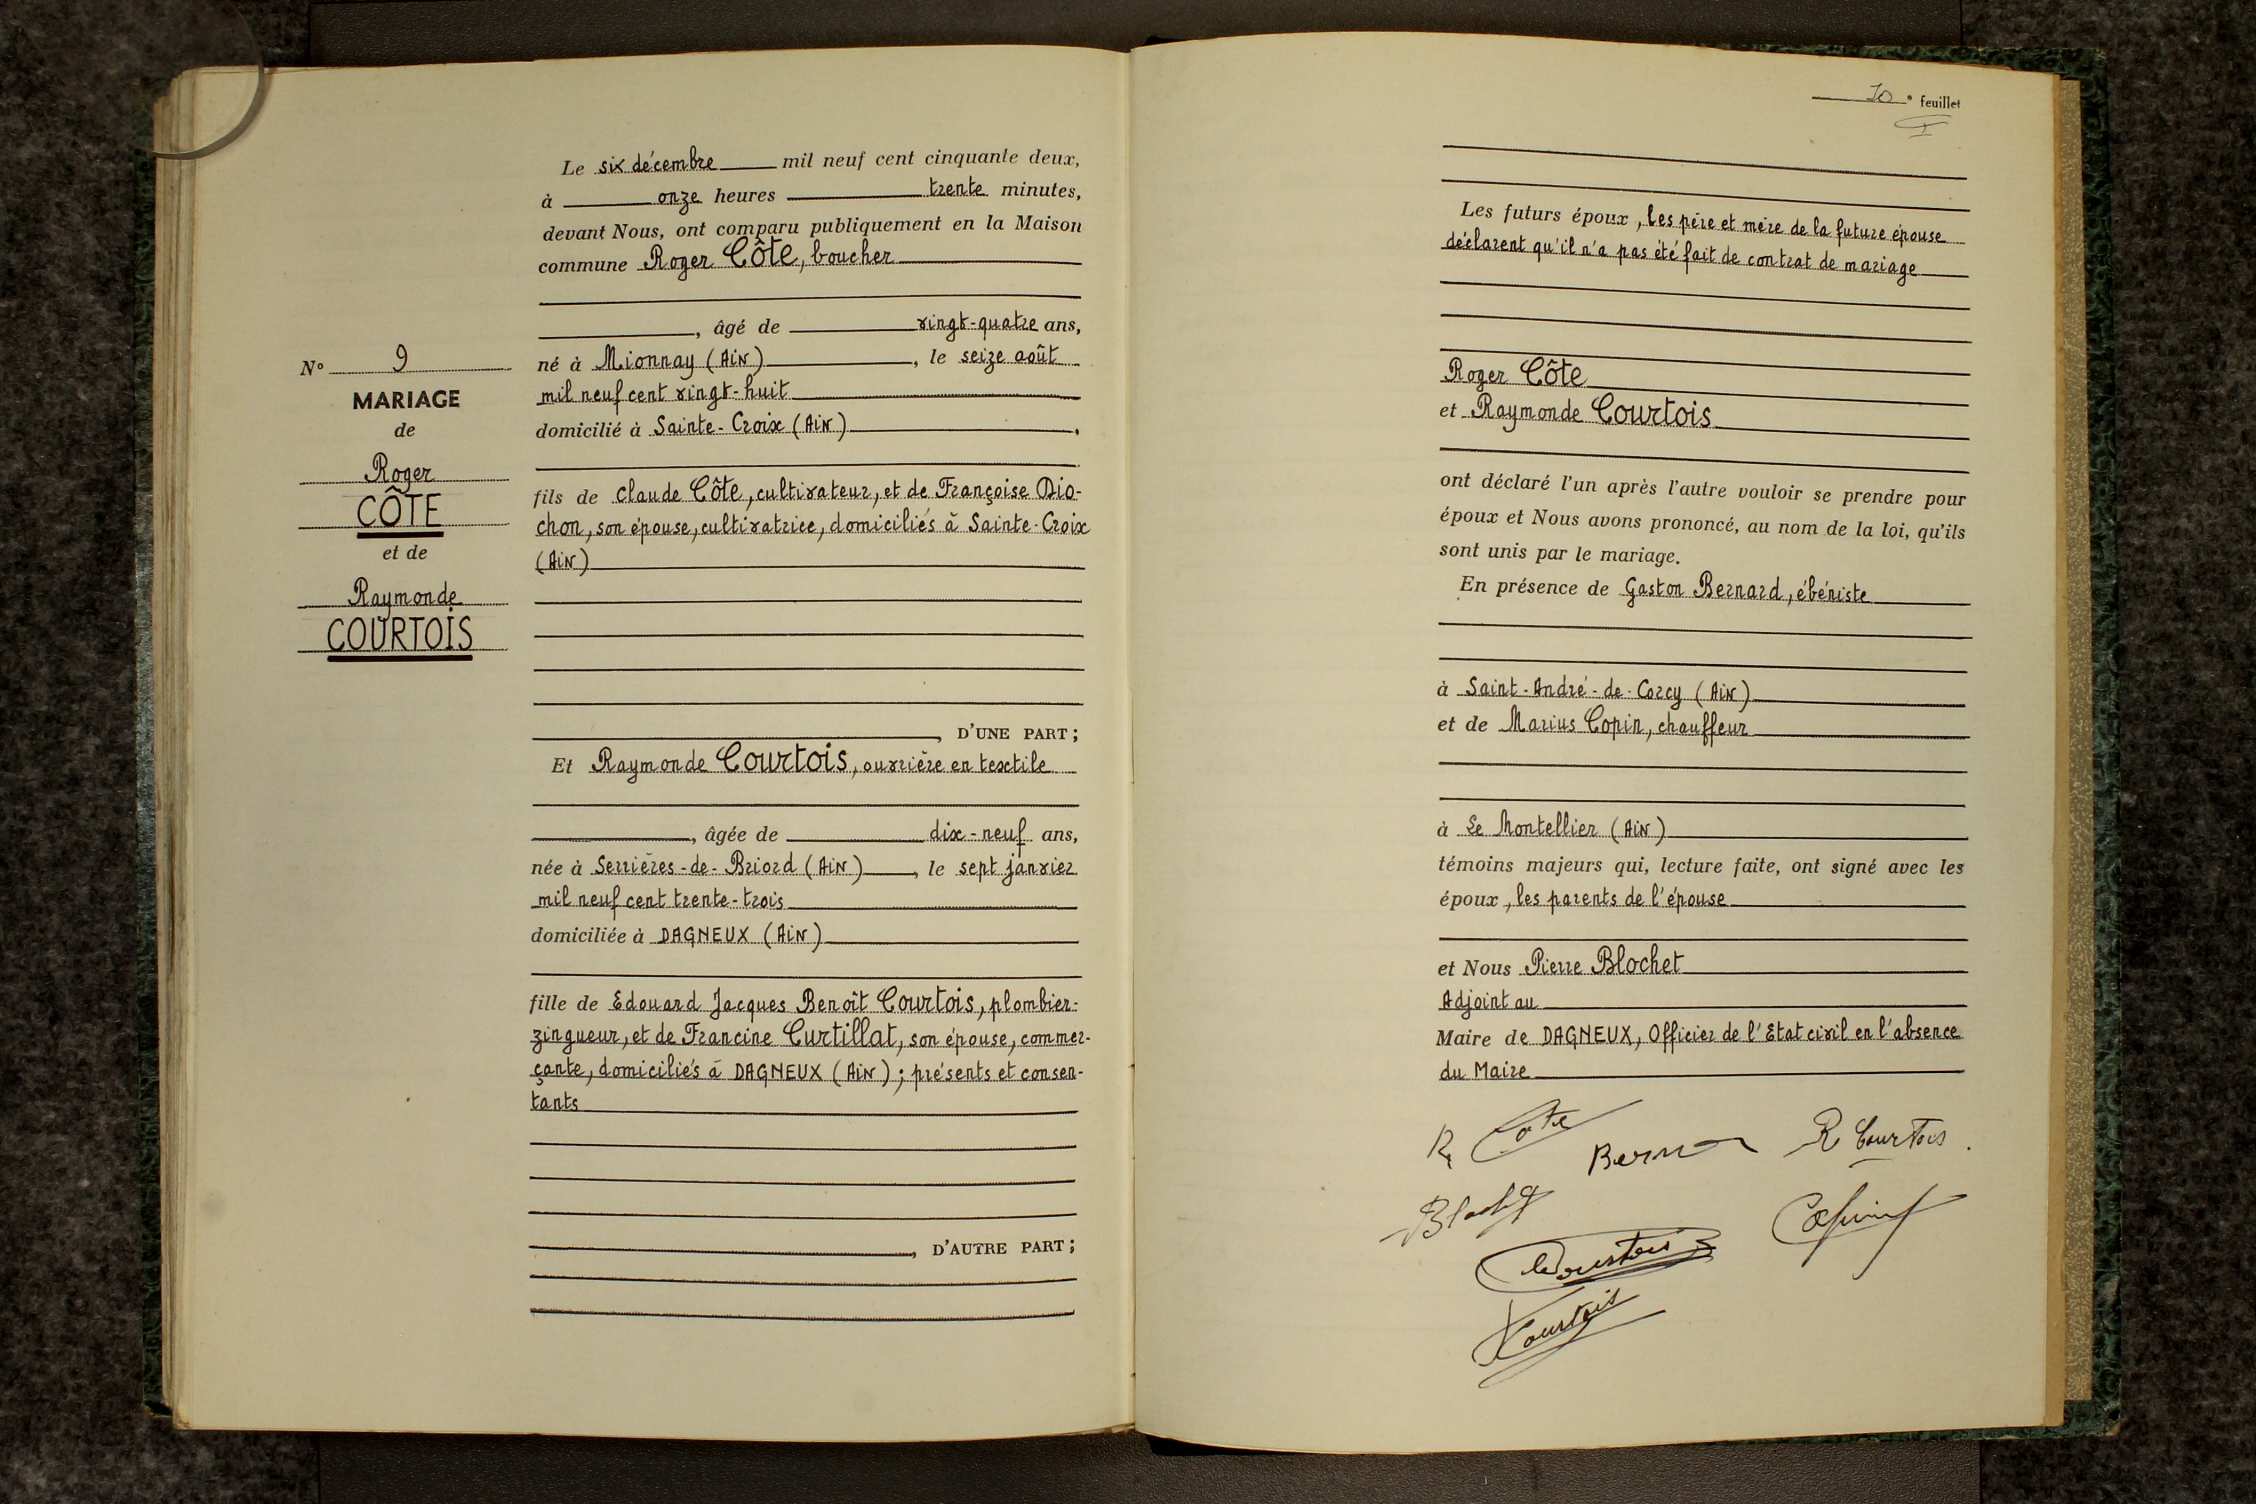 Le six décembre mil neuf cent cinquante deux,
à onze heures trente minutes,
devant Nous, ont comparu publiquement en la Maison
commune Roger Côte, boucher
, âgé de vingt-quatre ans,
né à Mionnay (Ain), le seize août
mil neuf cent vingt-huit
domicilié à Sainte-Croix (Ain),
fils de Claude Côte, cultivateur, et de Françoise Dio-
chon, son épouse, cultivatrice, domiciliés à Sainte-Croix
(Ain)
D'UNE PART;
Nº 9
MARIAGE
de
Roger
CÔTE
et de
Raymonde
COURTOIS
Et Raymonde Courtois, ouvrière en textile
, âgée de dix-neuf ans,
née à Serrières-de-Briord (Ain), le sept janvier
mil neuf cent trente-trois
domiciliée à DAGNEUX (Ain)
fille de Edouard Jacques Benoît Courtois, plombier-
zingueur, et de Francine Curtillat, son épouse, commer-
çante, domiciliés à DAGNEUX (Ain); présents et consen-
tants
, D'AUTRE PART;
10 e feuillet
Les futurs époux, les père et mère de la future épouse
déclarent qu'il n'a pas été fait de contrat de mariage
Roger Côte
et Raymonde Courtois
ont déclaré l'un après l'autre vouloir se prendre pour
époux et Nous avons prononcé, au nom de la loi, qu'ils
sont unis par le mariage.
En présence de Gaston Bernard, ébéniste
à Saint-André-de-Corcy (Ain)
et de Marius Copin, chauffeur
à Le Montellier (Ain)
témoins majeurs qui, lecture faite, ont signé avec les
époux, les parents de l'épouse
et Nous Pierre Blochet
Adjoint au
Maire de DAGNEUX, Officier de l'Etat civil en l'absence
du Maire
R. Cote
R Courtois.
Blochet
Copin
Courtois
Courtois